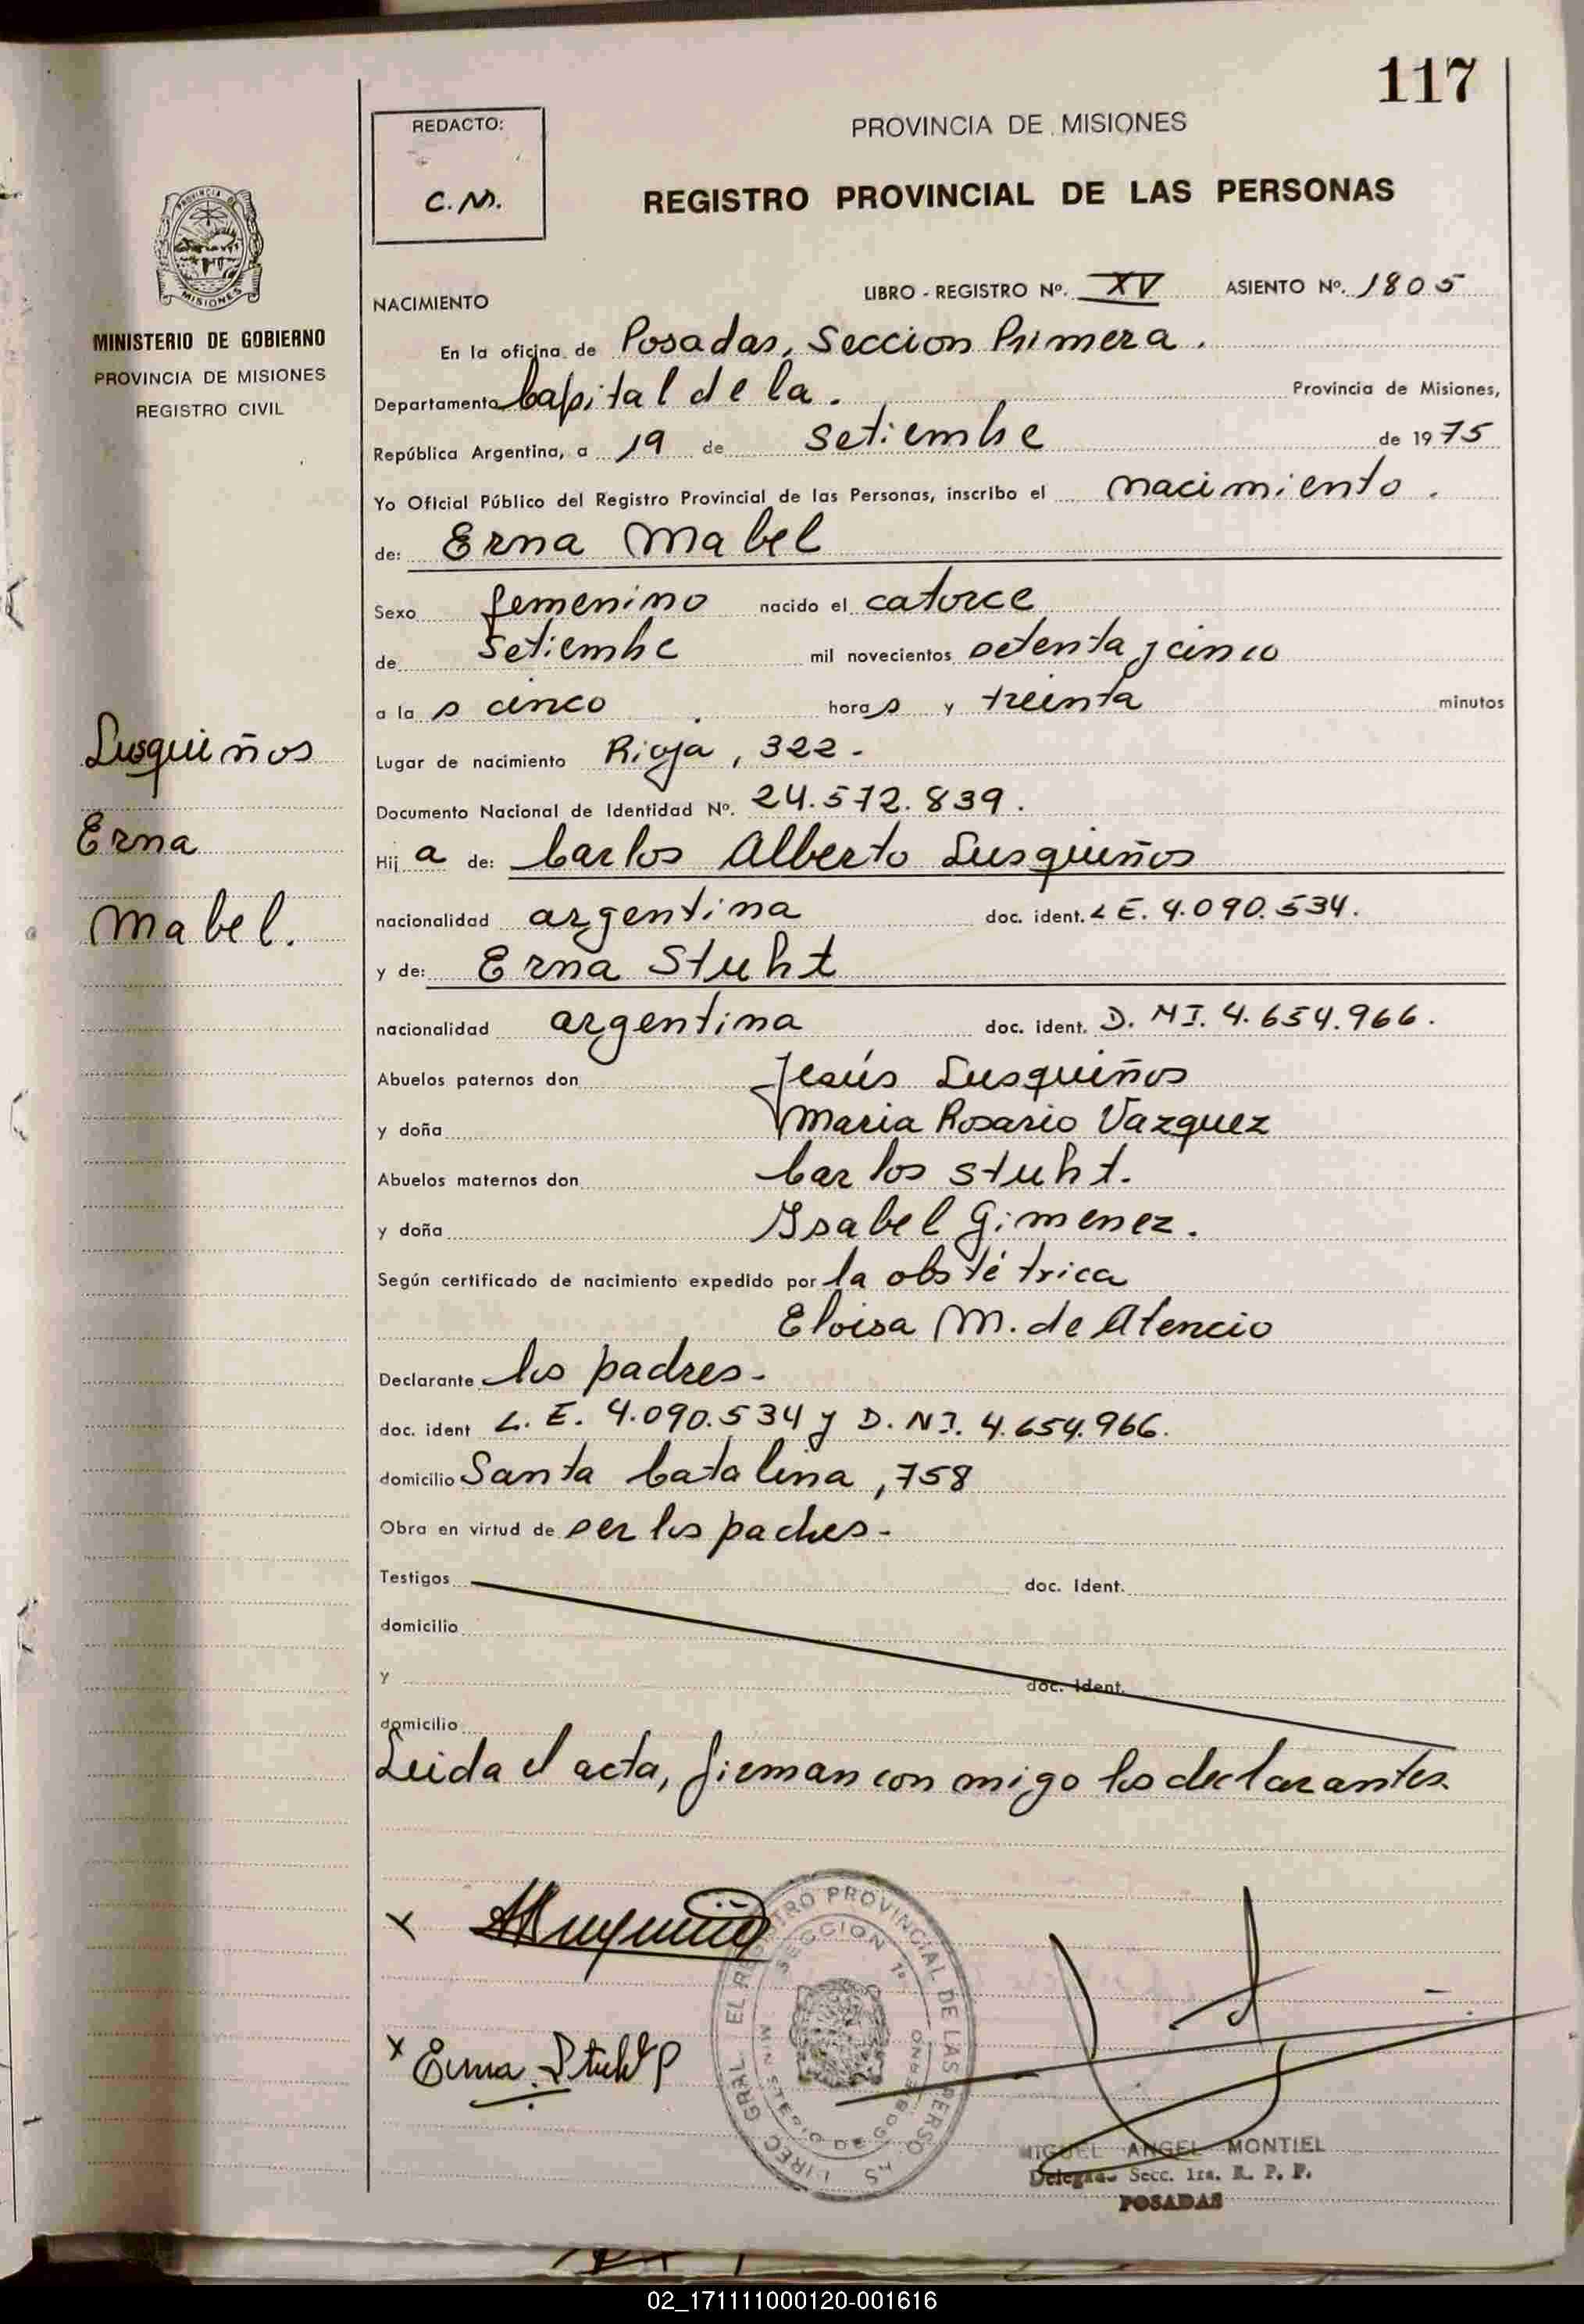 117
REDACTO:
C.M.
PROVINCIA DE MISIONES
REGISTRO PROVINCIAL DE LAS PERSONAS
MISIONES
MINISTERIO DE GOBIERNO
PROVINCIA DE MISIONES
REGISTRO CIVIL
NACIMIENTO LIBRO - REGISTRO Nº. XV ASIENTO Nº. 1805
En la oficina de Posadas, Seccion Primera.
Departamento Capital de la. Provincia de Misiones,
República Argentina, a 19 de Setiembre de 1975
Yo Oficial Público del Registro Provincial de las Personas, inscribo el nacimiento.
de: Erna Mabel
Sexo femenino nacido el catorce
de Setiembre mil novecientos setenta y cinco
a la s cinco horas y treinta minutos
Lugar de nacimiento Rioja, 322-
Documento Nacional de Identidad Nº. 24.572.839.
Hij a de: Carlos Alberto Lusquiños
nacionalidad argentina doc. ident. L E. 4.090.534.
y de: Erna Stuht
nacionalidad argentina doc. ident. D. NI. 4.654.966.
Abuelos paternos don Jesús Lusquiños
y doña Maria Rosario Vazquez
Abuelos maternos don Carlos Stuht.
y doña Ysabel Gimenez.
Según certificado de nacimiento expedido por la obstétrica
Eloisa M. de Atencio
Declarante los padres-
doc. ident L. E. 4.090.534 y D. NI. 4.654.966.
domicilio Santa Catalina, 758
Obra en virtud de ser los padres-
Testigos doc. Ident.
domicilio
y doc. Ident.
domicilio
Leida el acta, firman con migo los declarantes.
Lusquiños
Erna
Mabel.
x
x Erna Stuht
DIREC GRAL. EL REGISTRO PROVINCIAL DE LAS PERSONAS
SECCION 1ª
MINISTERIO DE GOBIERNO
MIGUEL ANGEL MONTIEL
Delegado Secc. 1ra. R. P. P.
POSADAS
02_171111000120-001616